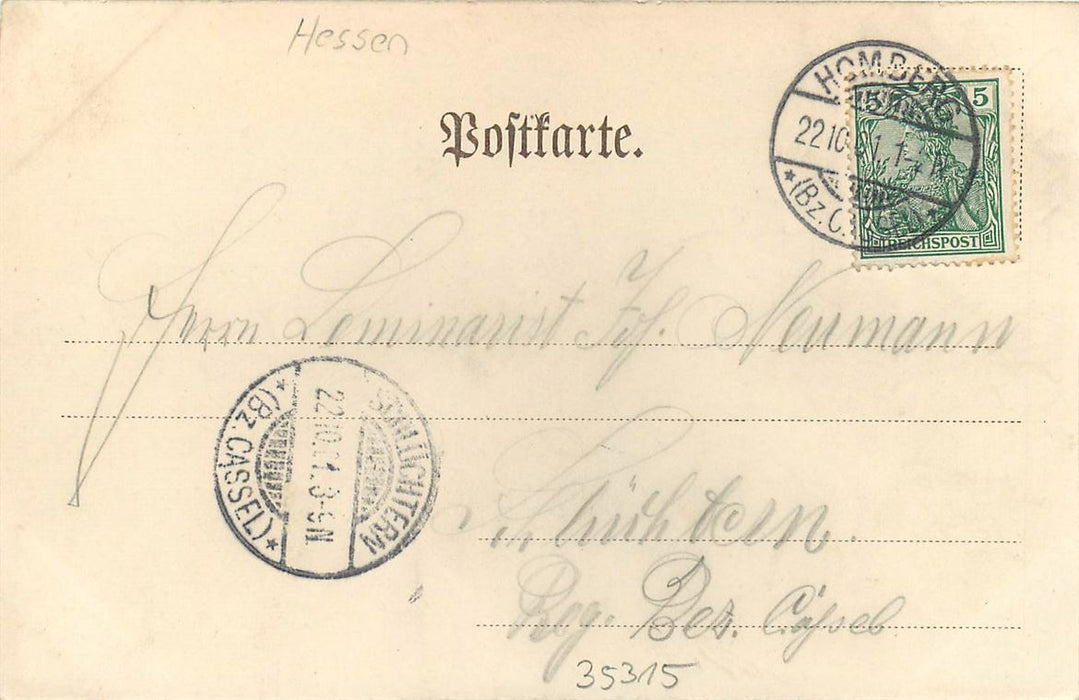 Hessen
Postkarte.
HOMBERG
22 10 01 1-
* (Bz. C
*
5 5
REICHSPOST
Herrn Seminarist Jos. Neumann
SCHLÜCHTERN
22.10.01.3-6N
* (Bz. CASSEL) *
Schlüchtern.
Reg. Bez. Cassel
35315